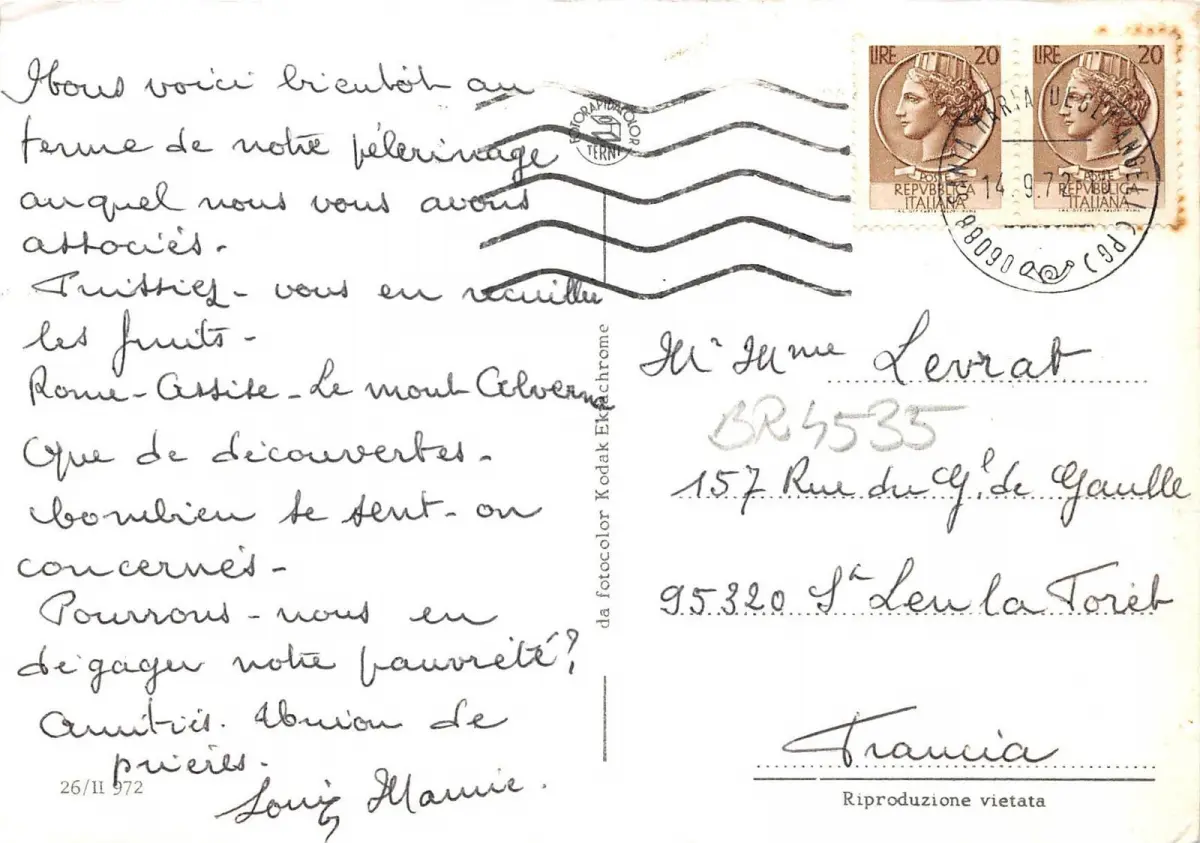 Nous voici bientôt au
terme de notre pélerinage
auquel nous vous avons
associés.
Puissiez-vous en recueillir
les fruits-
Rome-Assise-Le mont Alverna
Que de découvertes-
combien se sent-on
concernés-
Pourrons-nous en
dégager notre pauvreté?
Amitiés. Union de
prières.
Louis
26/II 972
FOTORAPIDACOLOR
TERNI
da fotocolor Kodak Ektachrome
LIRE 20
POSTE
REPVBBLICA
ITALIANA
LIRE 20
POSTE
REPVBBLICA
ITALIANA
06088 SANTA MARIA DEGLI ANGELI (PG)
14.9.72
Mr Mme Levrat
BR4535
157 Rue du Gl de Gaulle
95320 St Leu la Forêt
Francia
Riproduzione vietata